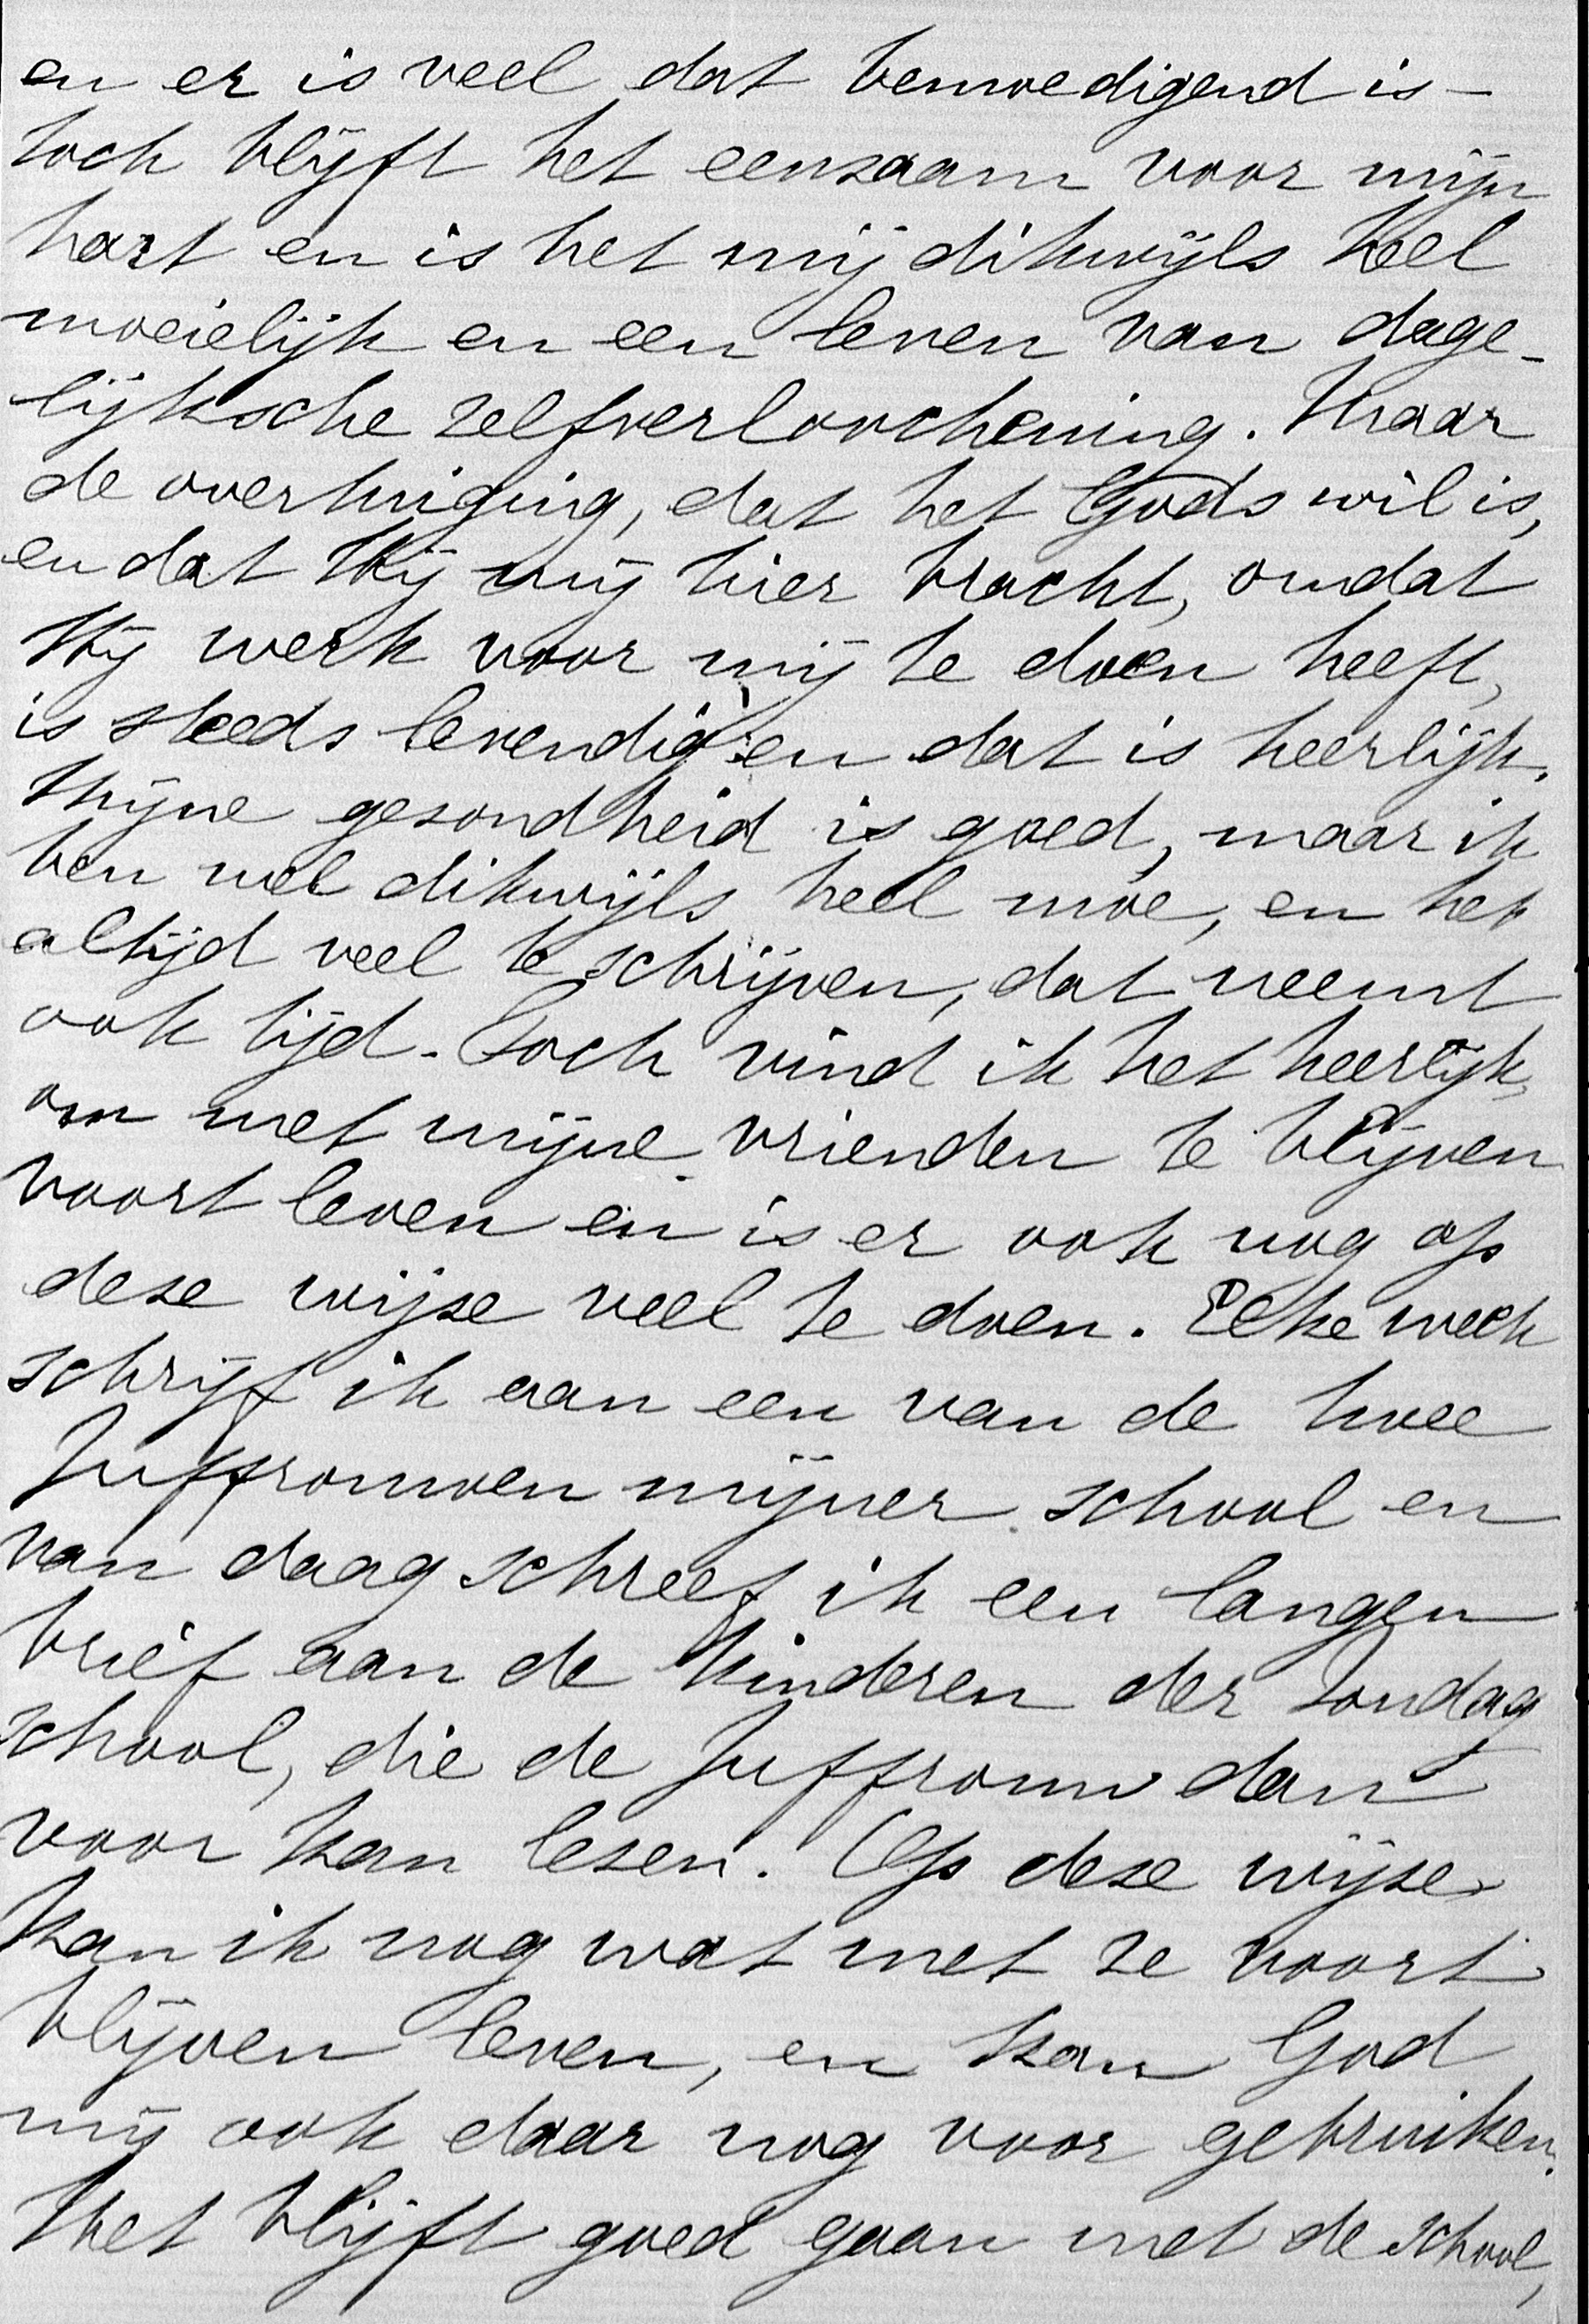 en er is veel dat bemoedigend is –
toch blijft het eenzaam voor mijn
hart en is het mij dikwijls heel
moeielijk en een leven van dage-
lijksche zelfverloochening. Maar
de overtuiging, dat het Gods wil is,
en dat Hij mij hier bracht, omdat
Hij werk voor mij te doen heeft,
is steeds levendig en dat is heerlijk.
Mijne gezondheid is goed, maar ik
ben wel dikwijls heel moe, en heb
altijd veel te schrijven, dat neemt
ook tijd. Toch vind ik het heerlijk,
om met mijne vrienden te blijven
voort leven en is er ook nog op
deze wijze veel te doen. Elke week
schrijf ik aan een van de twee
Juffrouwen mijner school en
van daag schreef ik een langen
brief aan de kinderen der Zondag
school, die de Juffrouw dan
voor kan lezen. Op deze wijze
kan ik nog wat met ze voort
blijven leven, en kan God
mij ook daar nog voor gebruiken.
Het blijft goed gaan met de school,